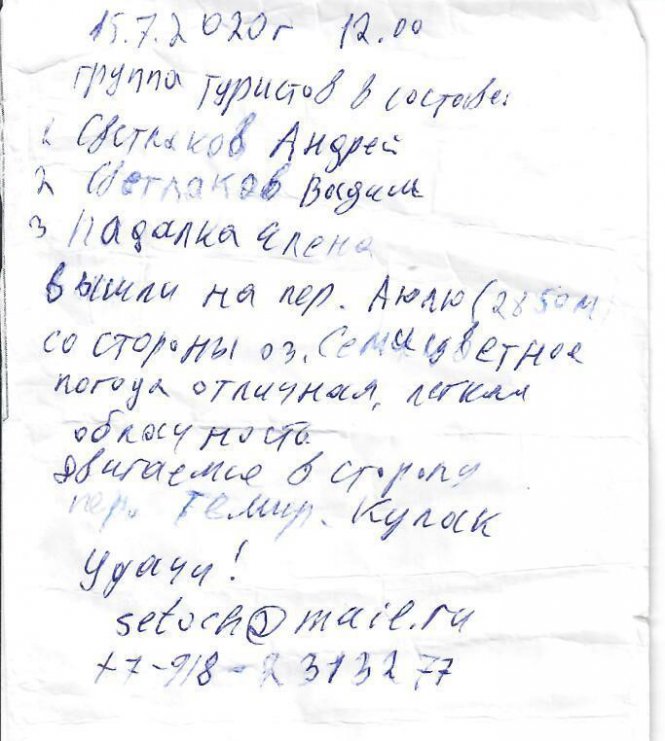 15.7.2020г 12.00
группа туристов в составе:
1 Светлаков Андрей
2 Светлаков Вадим
3 Падалка Елена
вышли на пер. Аюлю (2850м)
со стороны оз. Семицветное
погода отличная, легкая
облачность
двигаемся в сторону
пер. Темир. Кулак
Удачи!
setoch@mail.ru
+7-918-2313277